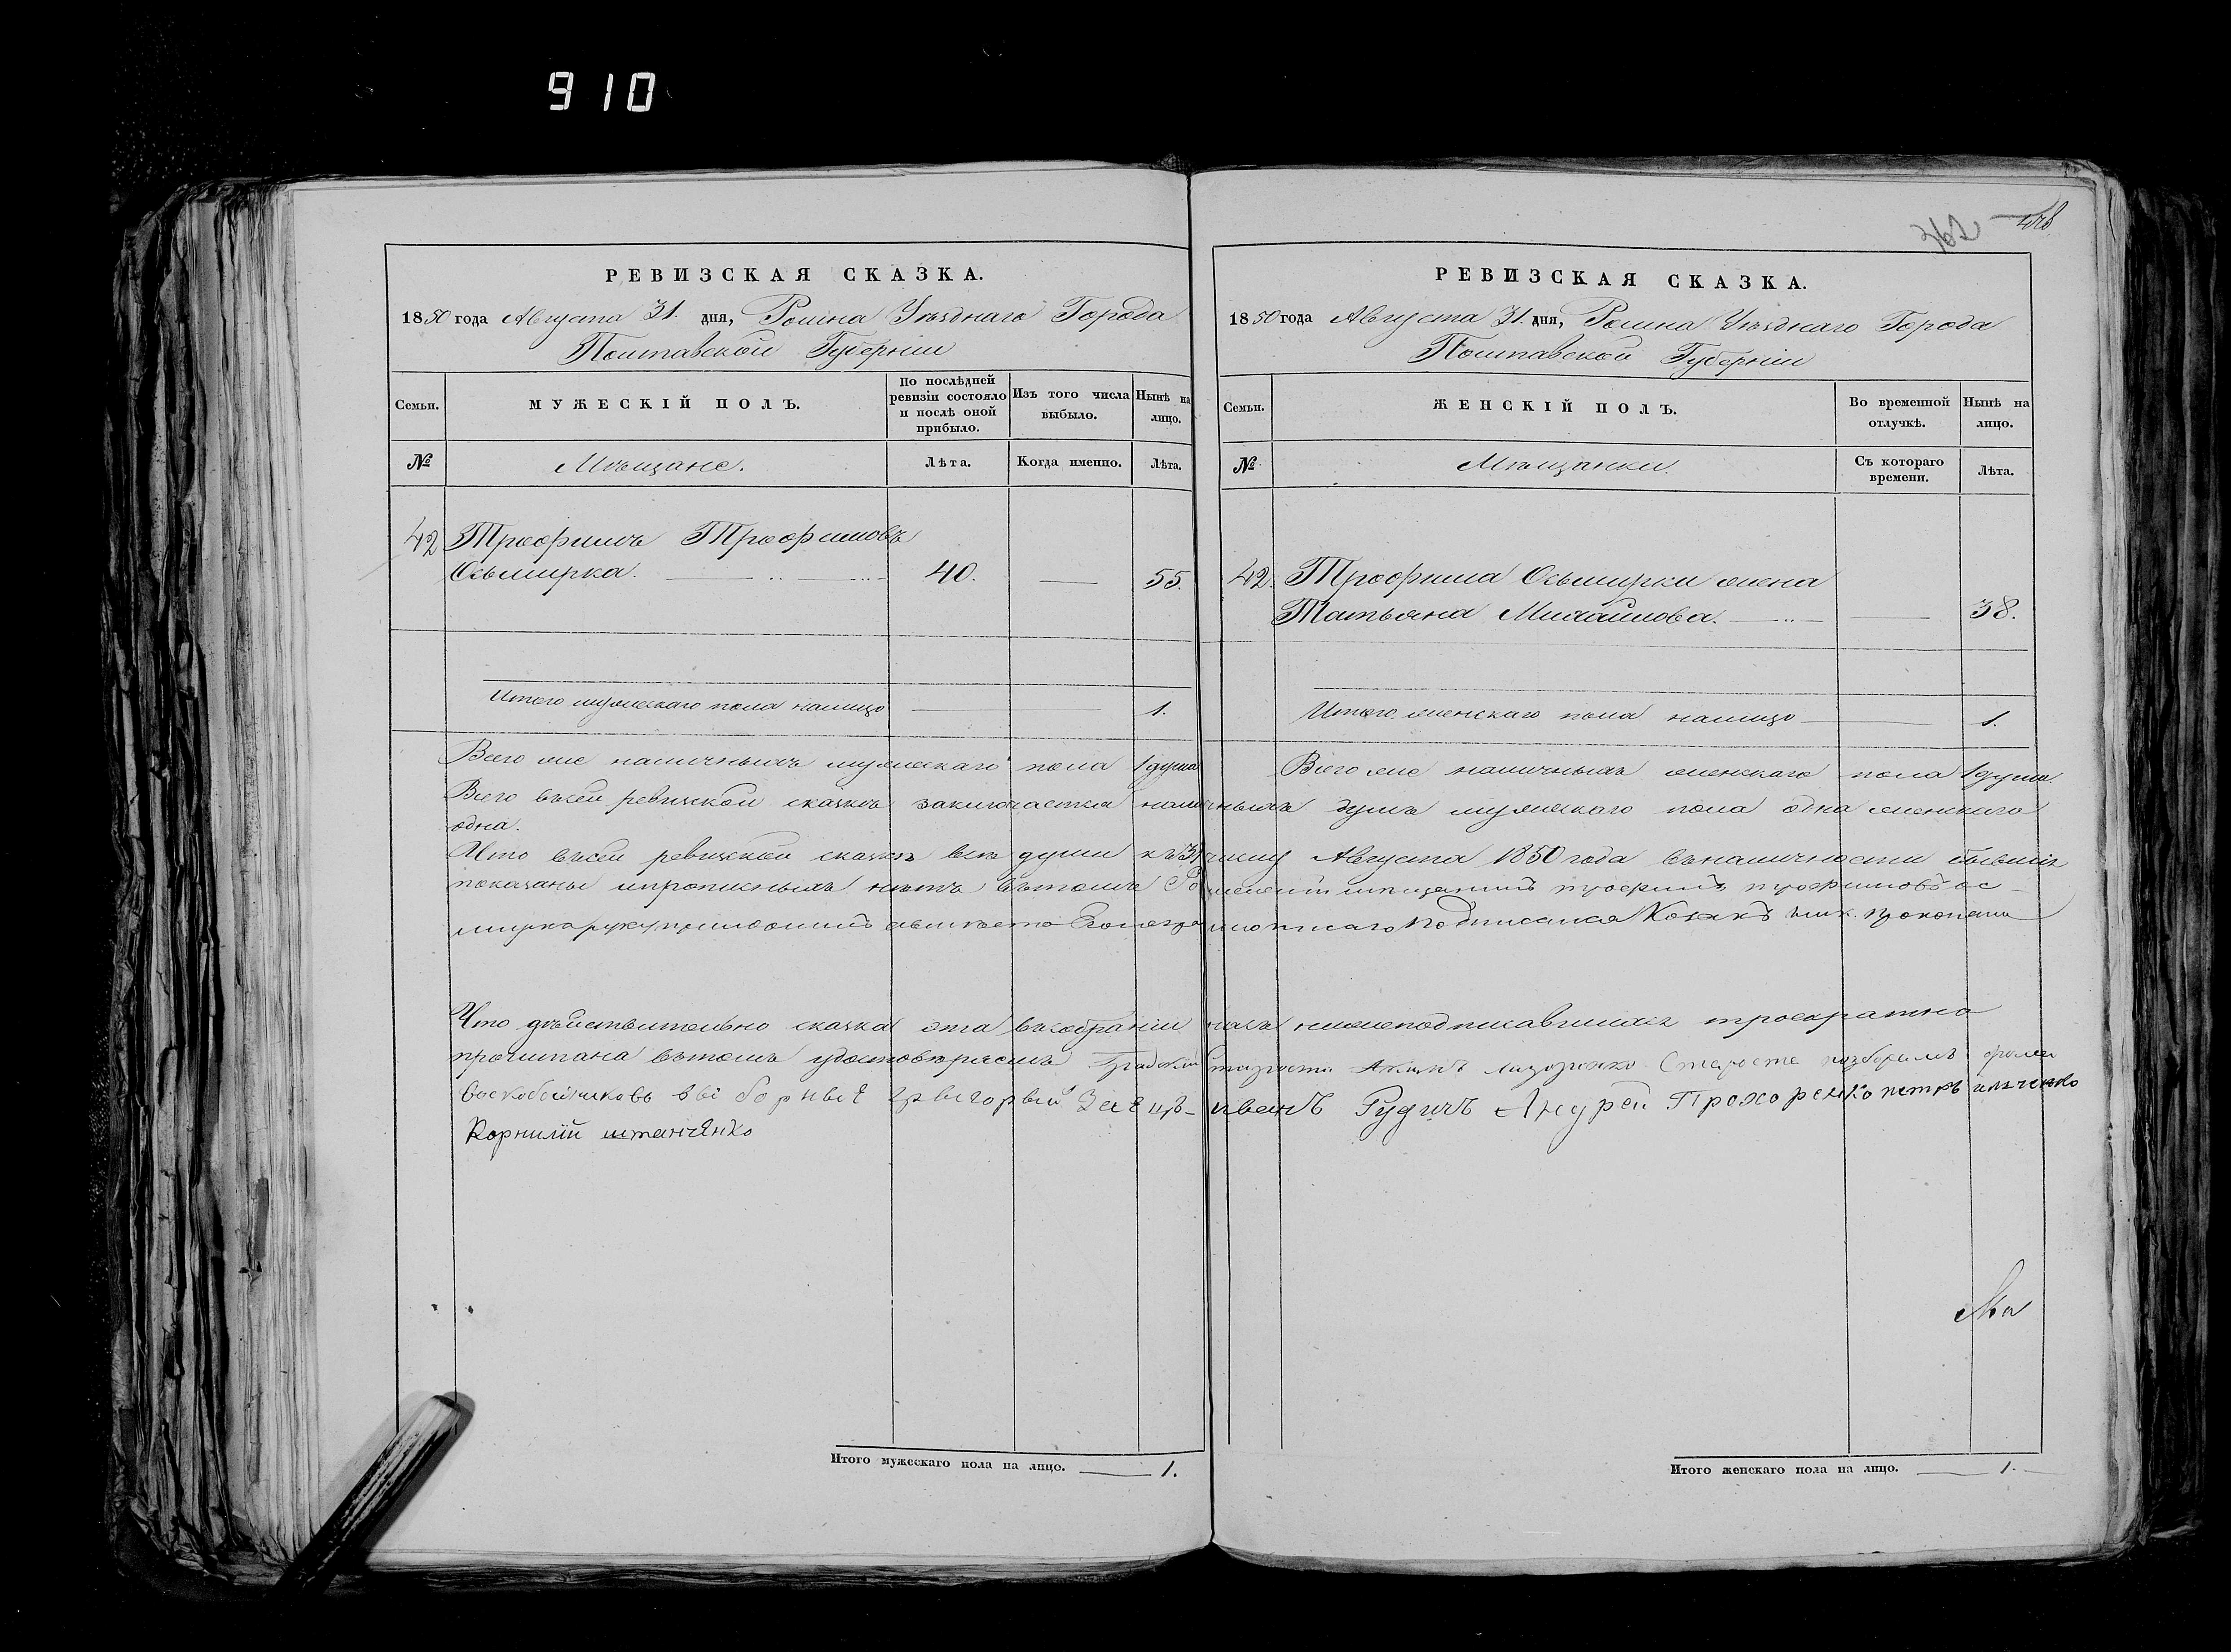 910
РЕВИЗСКАЯ СКАЗКА.
1850 года Августа 31. дня, Ромна Уѣзднаго Города
Полтавской Губерніи
Семьи.
МУЖЕСКІЙ ПОЛЪ.
По послѣдней ревизіи состояло и послѣ оной прибыло.
Изъ того числа выбыло.
Нынѣ на лицо.
№
Мѣщане.
Лѣта.
Когда именно.
Лѣта.
42 Трофимъ Трофимовъ
Осьмирка. 40. 55.
Итого мужескаго пола налицо 1.
РЕВИЗСКАЯ СКАЗКА.
1850 года Августа 31. дня, Ромна Уѣзднаго Города
Полтавской Губерніи
Семьи.
ЖЕНСКІЙ ПОЛЪ.
Во временной отлучкѣ.
Нынѣ на лицо.
№
Мѣщанки.
Съ котораго времени.
Лѣта.
42. Трофима Осьмирки жена
Татьяна Михайлова. 38.
Итого женскаго пола налицо 1.
Всего же наличныхъ мужескаго пола 1 душа Всего же наличныхъ женскаго пола 1 душа.
Всего въсей ревизской сказкѣ заключается наличныхъ душъ мужескаго пола одна женскаго
одна.
Что въсей ревизской сказкѣ всѣ души къ 31 числу Августа 1850 года въналичности бывшіе
показаны ипрописныхъ нѣтъ вътомъ трофимъ трофимовъ ос
мирка подписался Козакъ
Что дѣйствительно сказка эта въсобраніи насъ нижеподписавшихся троекратно
прочитана вътомъ удостовѣряемъ Градскій староста
Воскобойниковъ выборные григорый Заецъ иванъ Рудичъ Андрей Прохоренко петръ ильченко
Корнилій штанченко
Итого мужескаго пола на лицо. 1.
Итого женскаго пола на лицо. 1.